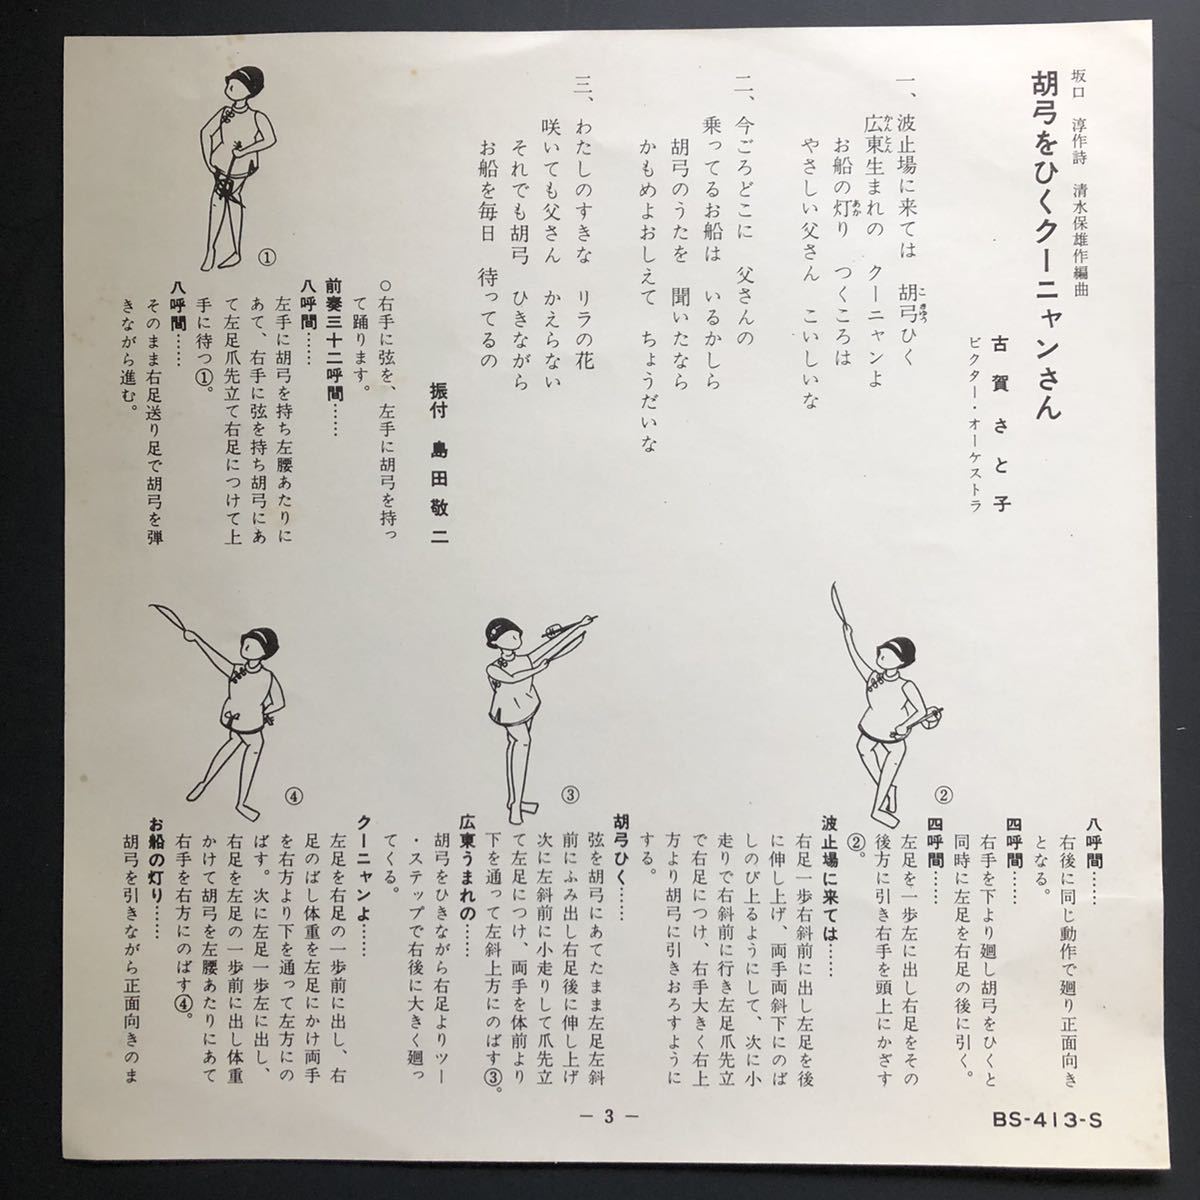 坂口　淳作詩　清水保雄作編曲
胡弓をひくクーニャンさん
古賀さと子
ビクター・オーケストラ
一、波止場に来ては　胡弓ひく
こきゅう
広東生まれの　クーニャンよ
かんとん
お船の灯り　つくころは
あか
やさしい父さん　こいしいな
二、今ごろどこに　父さんの
乗ってるお船は　いるかしら
胡弓のうたを　聞いたなら
かもめよおしえて　ちょうだいな
三、わたしのすきな　リラの花
咲いても父さん　かえらない
それでも胡弓　ひきながら
お船を毎日　待ってるの
振付　島田敬二
○右手に弦を、左手に胡弓を持っ
て踊ります。
前奏三十二呼間……
八呼間……
左手に胡弓を持ち左腰あたりに
あて、右手に弦を持ち胡弓にあ
て左足爪先立て右足につけて上
手に待つ①。
八呼間……
そのまま右足送り足で胡弓を弾
きながら進む。
①
八呼間……
右後に同じ動作で廻り正面向き
となる。
四呼間……
右手を下より廻し胡弓をひくと
同時に左足を右足の後に引く。
四呼間……
左足を一歩左に出し右足をその
後方に引き右手を頭上にかざす
②。
②
波止場に来ては……
右足一歩右斜前に出し左足を後
に伸し上げ、両手両斜下にのば
しのび上るようにして、次に小
走りで右斜前に行き左足爪先立
で右足につけ、右手大きく右上
方より胡弓に引きおろすように
する。
胡弓ひく……
弦を胡弓にあてたまま左足左斜
前にふみ出し右足後に伸し上げ
次に左斜前に小走りして爪先立
て左足につけ、両手を体前より
下を通って左斜上方にのばす③。
③
広東うまれの……
胡弓をひきながら右足よりツー
・ステップで右後に大きく廻っ
てくる。
クーニャンよ……
左足を右足の一歩前に出し、右
足のばし体重を左足にかけ両手
を右方より下を通って左方にの
ばす。次に左足一歩左に出し、
右足を左足の一歩前に出し体重
かけて胡弓を左腰あたりにあて
右手を右方にのばす④。
④
お船の灯り……
胡弓を引きながら正面向きのま
－ 3 －
BS-413-S